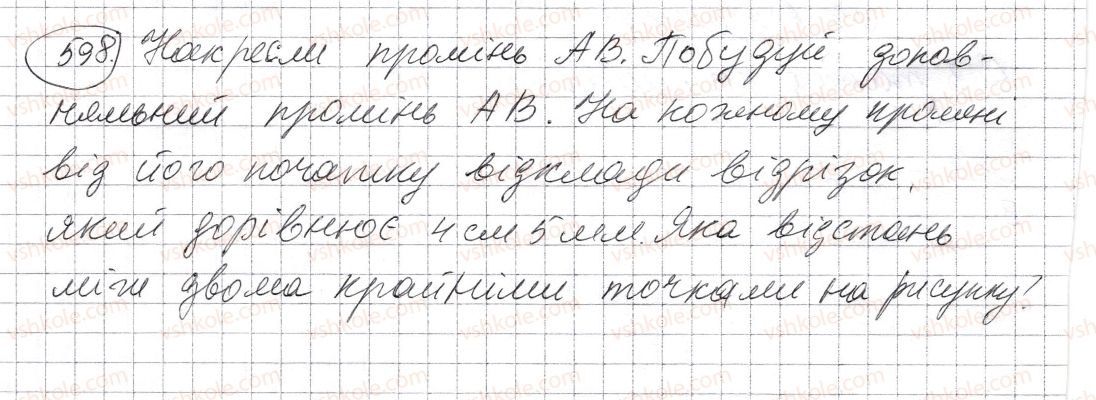 598. Накресли промінь АВ. Побудуй допов-
няльний промінь АВ. На кожному промені
від його початку відклади відрізок,
який дорівнює 4 см 5 мм. Яка відстань
між двома крайніми точками на рисунку?